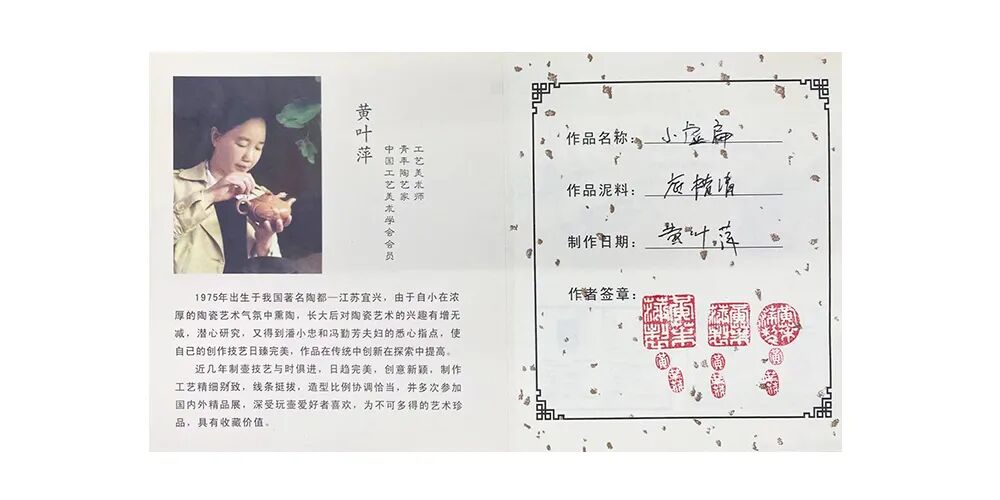 黄叶萍
工艺美术师
青年陶艺家
中国工艺美术学会会员
1975年出生于我国著名陶都—江苏宜兴，由于自小在浓
厚的陶瓷艺术气氛中熏陶，长大后对陶瓷艺术的兴趣有增无
减，潜心研究，又得到潘小忠和冯勤芳夫妇的悉心指点，使
自已的创作技艺日臻完美，作品在传统中创新在探索中提高。
近几年制壶技艺与时俱进，日趋完美，创意新颖，制作
工艺精细别致，线条挺拔，造型比例协调恰当，并多次参加
国内外精品展，深受玩壶爱好者喜欢，为不可多得的艺术珍
品，具有收藏价值。
作品名称：小虚扁
作品泥料：清
制作日期：黄叶萍
作者签章：